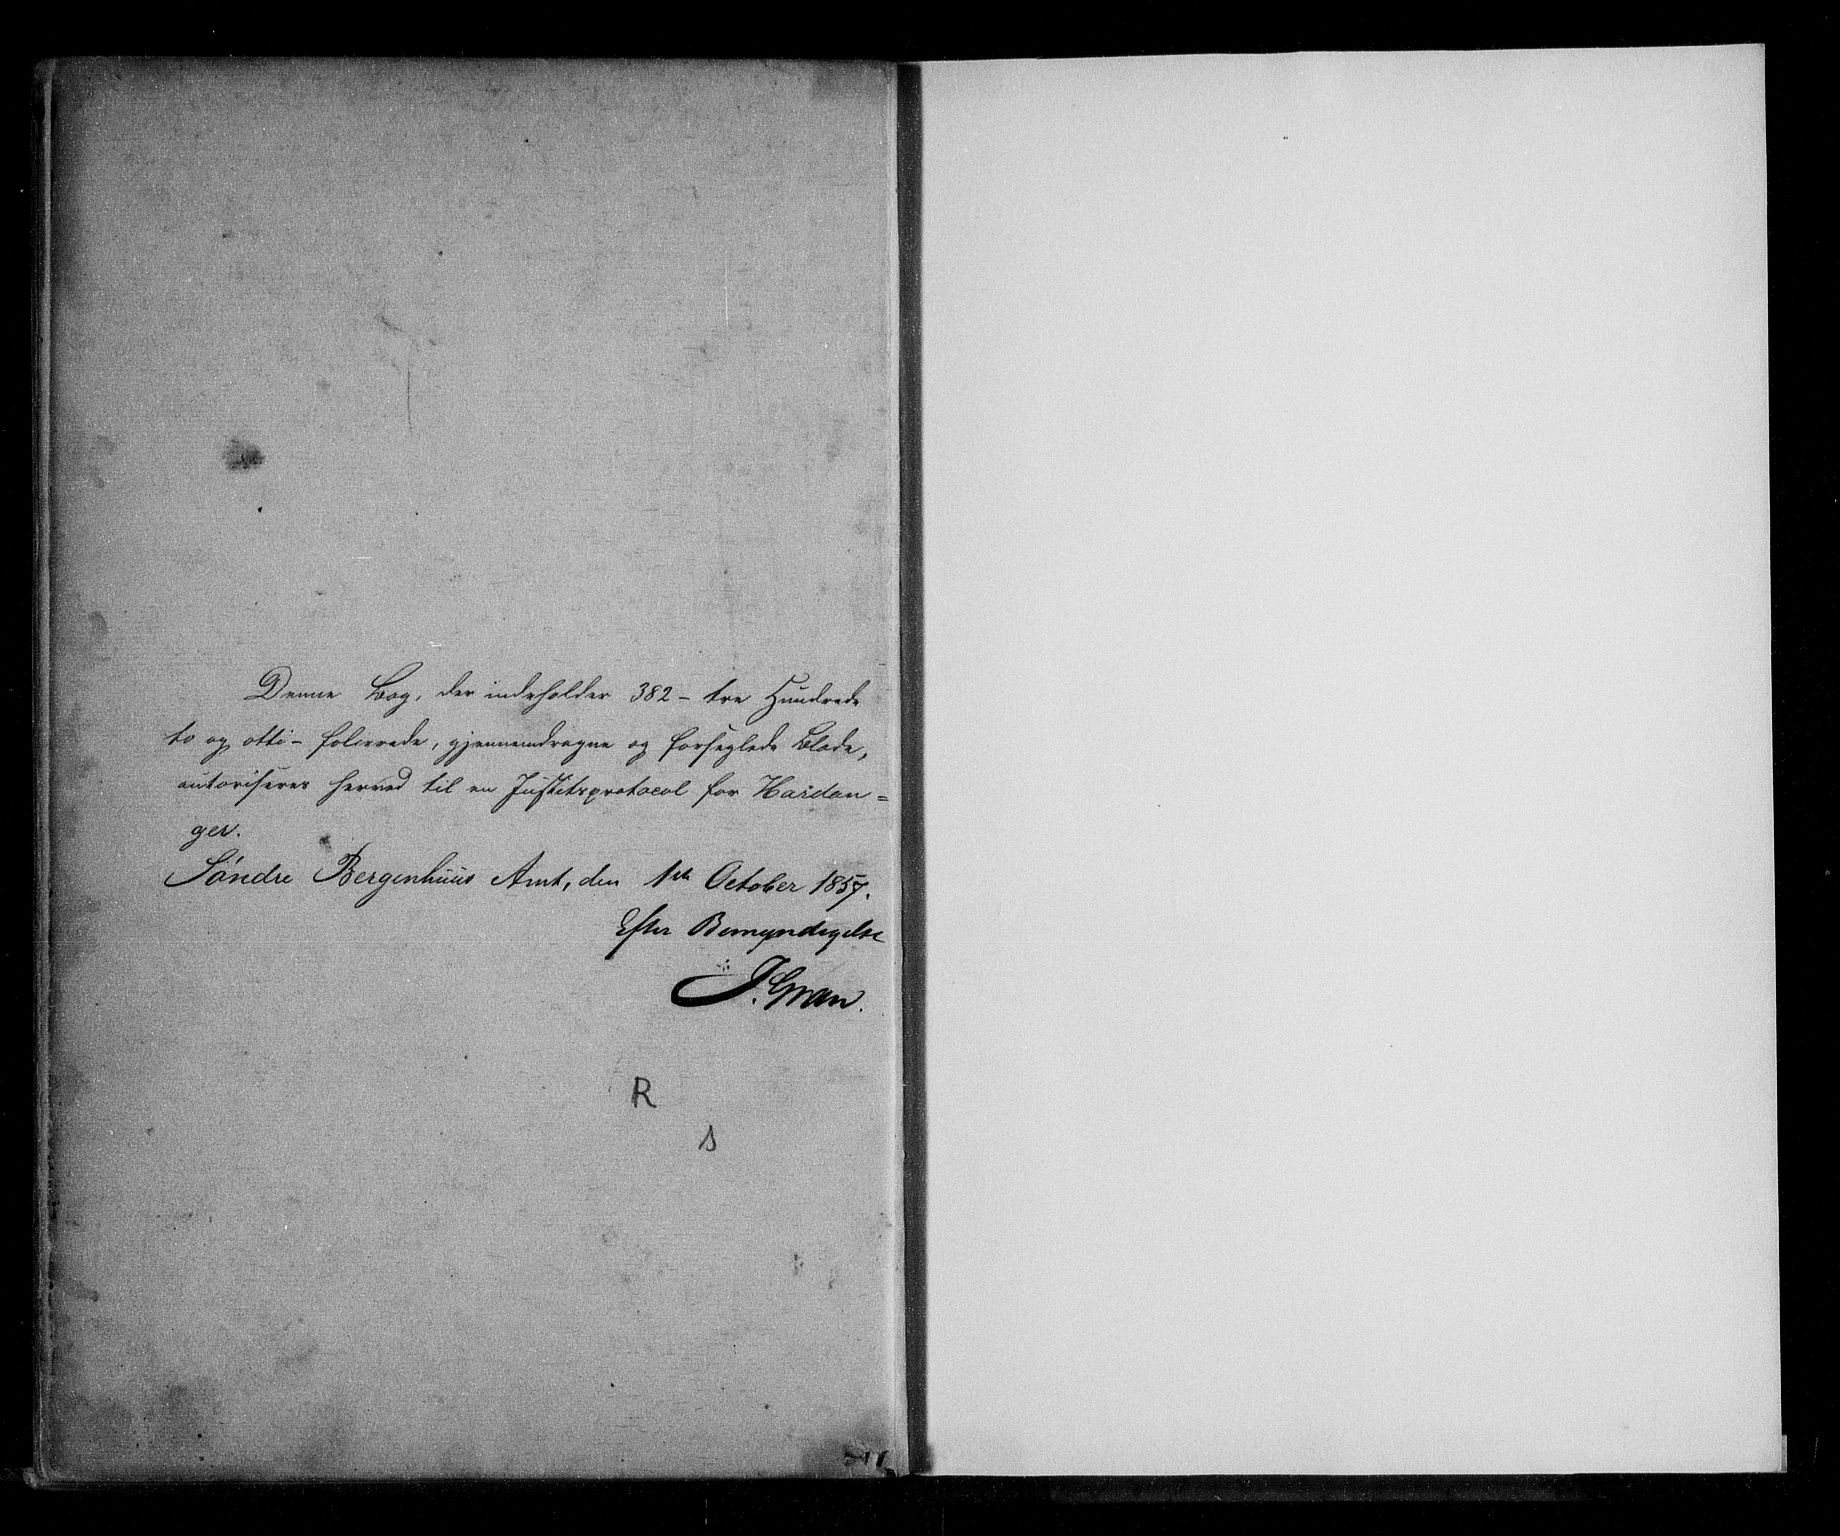 Denne Bog, der indeholder 382 - tre Hundrede
to og otti - folierede, gjennemdragne og forseglede Blade,
autoriseres herved til en Justitsprotocol for Hardan=
ger.
Söndre Bergenhuus Amt, den 1ste October 1857.
Efter Bemyndigelse
J. Gran.
R
s